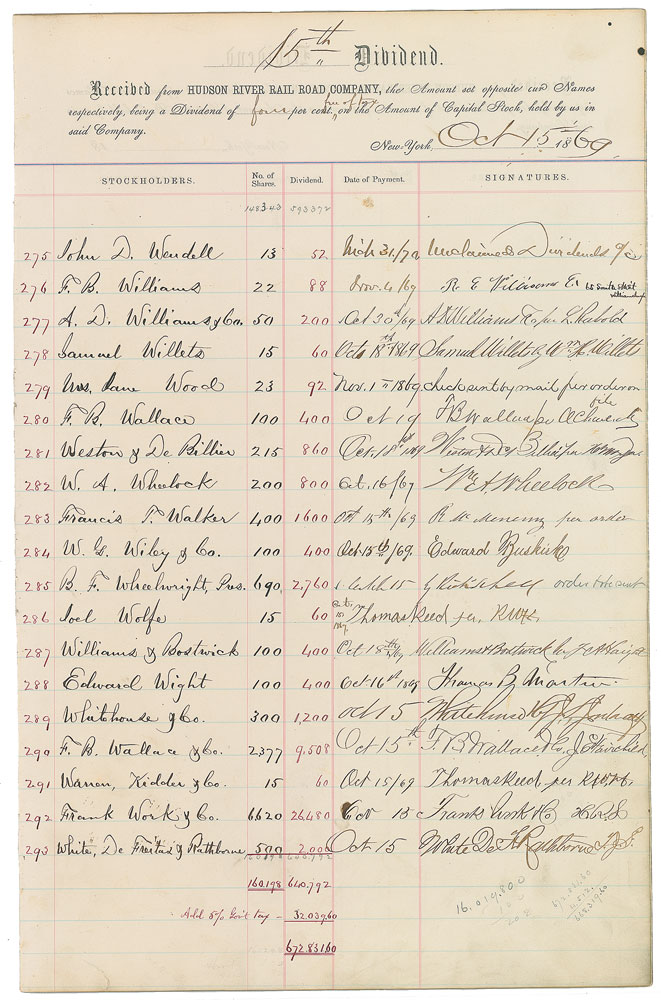 15th Dividend.
Received from HUDSON RIVER RAIL ROAD COMPANY, the Amount set opposite our Names
respectively, being a Dividend of four per cent., free of tax on the Amount of Capital Stock, held by us in
said Company.
New-York, Oct 15th 1869
STOCKHOLDERS. No. of Shares. Dividend. Date of Payment. SIGNATURES.
148343 593372
275 John D. Wendell 13 52 Mch 31/70 Unclaimed Dividends a/c
276 F. B. Williams 22 88 Nov. 4/69 R E Williams
277 A. D. Williams & Co. 50 200 Oct 30/69 A D Williams & Co per
278 Samuel Willets 15 60 Octo 18th 1869 Samuel Willets by Wm H. Willets
279 Mrs. Jane Wood 23 92 Nov. 1st 1869 check sent by mail per order on file
280 F. B. Wallace 100 400 Oct 19 F B Wallace
281 Weston & De Billier 215 860 Oct. 18th 1869 Weston & De Billier per
282 W. A. Wheelock 200 800 Oct. 16/69 Wm A. Wheelock
283 Francis T. Walker 400 1600 Oct 15th/69 R. Mc Menemy per order
284 W. G. Wiley & Co. 100 400 Oct 15th/69. Edward Buskirk
285 B. F. Wheelwright, Pres. 690 2,760 Oct 15 order
286 Joel Wolfe 15 60 Thomas Reed per
287 Williams & Bostwick 100 400 Oct 18th/69 Williams & Bostwick by Haight
288 Edward Wight 100 400 Oct. 16th 1869 Thomas B. Martin
289 Whitehouse & Co. 300 1,200 Oct 15 Whitehouse & Co
290 F. B. Wallace & Co. 2377 9,508 Oct 15th F. B. Wallace & Co. J. Fairchild
291 Warren, Kidder & Co. 15 60 Oct 15/69 Thomas Reed per
292 Frank Work & Co. 6620 26,480 Oct 15 Frank Work & Co
293 White, De Freitas & Rathborne 500 2,000 Oct 15 White De F & Rathborne
160198 640,792
160,198 640,792
Add 5% Gov't tax - 32,039,60
672,831,60
16.019.800